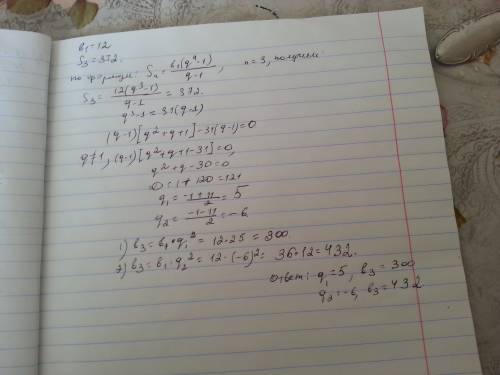 b₁=12
S₃=372.
по формуле: Sₙ = b₁(qⁿ-1)/(q-1), n=3, получим:
S₃ = 12(q³-1)/(q-1) = 372.
q³-1 = 31(q-1)
(q-1)[q²+q+1]-31(q-1)=0
q≠1, (q-1)[q²+q+1-31]=0,
q²+q-30=0
D=1+120=121
q₁ = (-1+11)/2 = 5
q₂ = (-1-11)/2 = -6.
1) b₃=b₁·q₁² = 12·25 = 300
2) b₃=b₁·q₂² = 12·(-6)² = 36·12=432.
Ответ: q₁=5, b₃=300
q₂=-6, b₃=432.